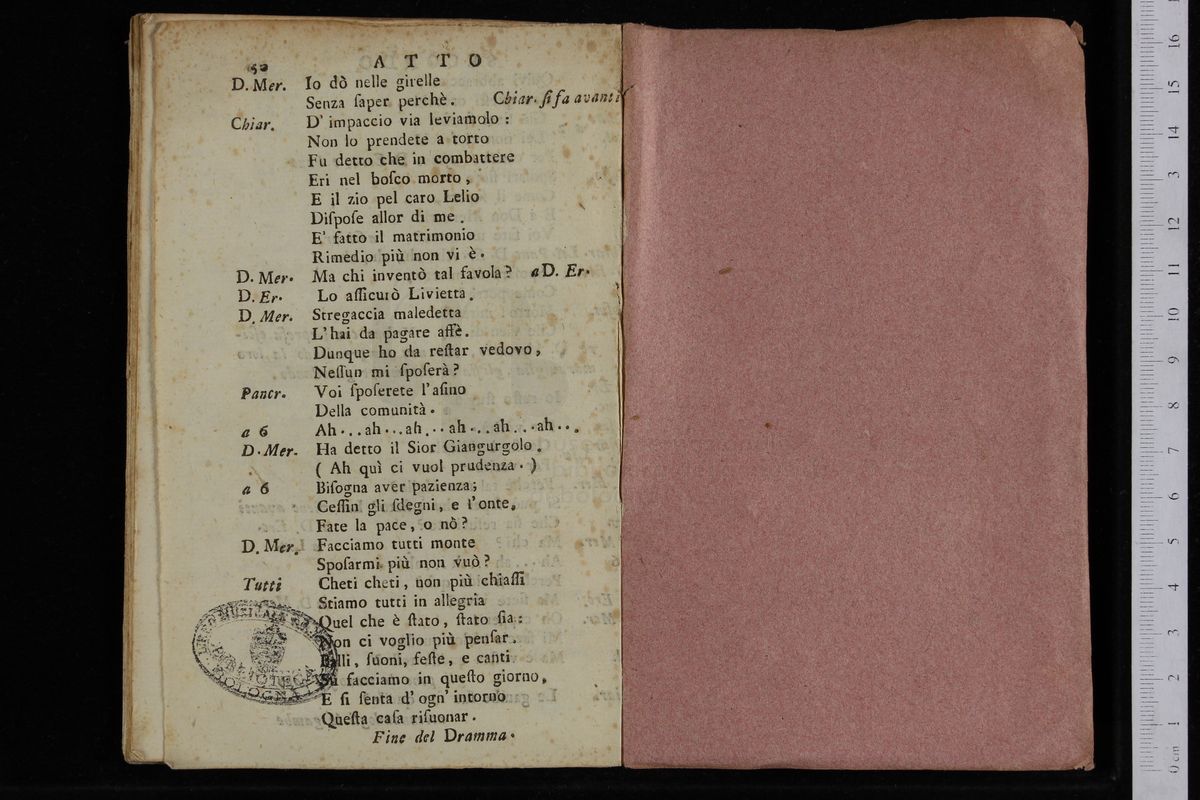 50 ATTO
D. Mer. Io dò nelle girelle
Senza ſaper perchè. Chiar. ſi fa avanti
Chiar. D' impaccio via leviamolo :
Non lo prendete a torto
Fu detto che in combattere
Eri nel boſco morto ,
E il zio pel caro Lelio
Diſpoſe allor di me .
E' fatto il matrimonio
Rimedio più non vi è .
D. Mer. Ma chi inventò tal favola ? a D. Er.
D. Er. Lo aſſicurò Livietta .
D. Mer. Stregaccia maledetta
L' hai da pagare affè .
Dunque ho da reſtar vedovo ,
Neſſun mi ſpoſerà ?
Pancr. Voi ſpoſerete l' aſino
Della comunità .
a 6 Ah...ah...ah...ah...ah...ah...
D. Mer. Ha detto il Sior Giangurgolo .
( Ah quì ci vuol prudenza . )
a 6 Biſogna aver pazienza ;
Ceſſin gli ſdegni , e l' onte ,
Fate la pace , o nò ?
D. Mer. Facciamo tutti monte
Spoſarmi più non vuò ?
Tutti Cheti cheti , non più chiaſſi
Stiamo tutti in allegria
Quel che è ſtato , ſtato ſia :
Non ci voglio più penſar .
Balli , ſuoni , feſte , e canti
Su facciamo in queſto giorno ,
E ſi ſenta d' ogn' intorno
Queſta caſa riſuonar .
Fine del Dramma .
LICEO MUSICALE
BIBLIOTECA
BOLOGNA
0 cm 1 2 3 4 5 6 7 8 9 10 11 12 13 14 15 16